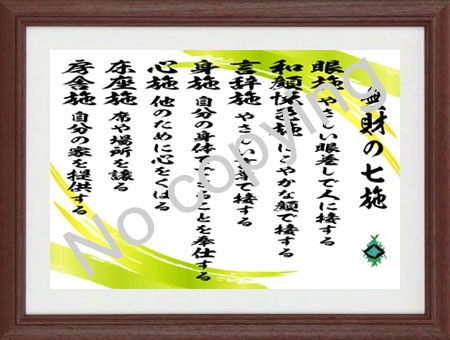 無財の七施
眼施 やさしい眼差しで人に接する
和顔悦色施 にこやかな顔で接する
言辞施 やさしい言葉で接する
身施 自分の身体でできることを奉仕する
心施 他のために心をくばる
床座施 席や場所を譲る
房舎施 自分の家を提供する
No copying